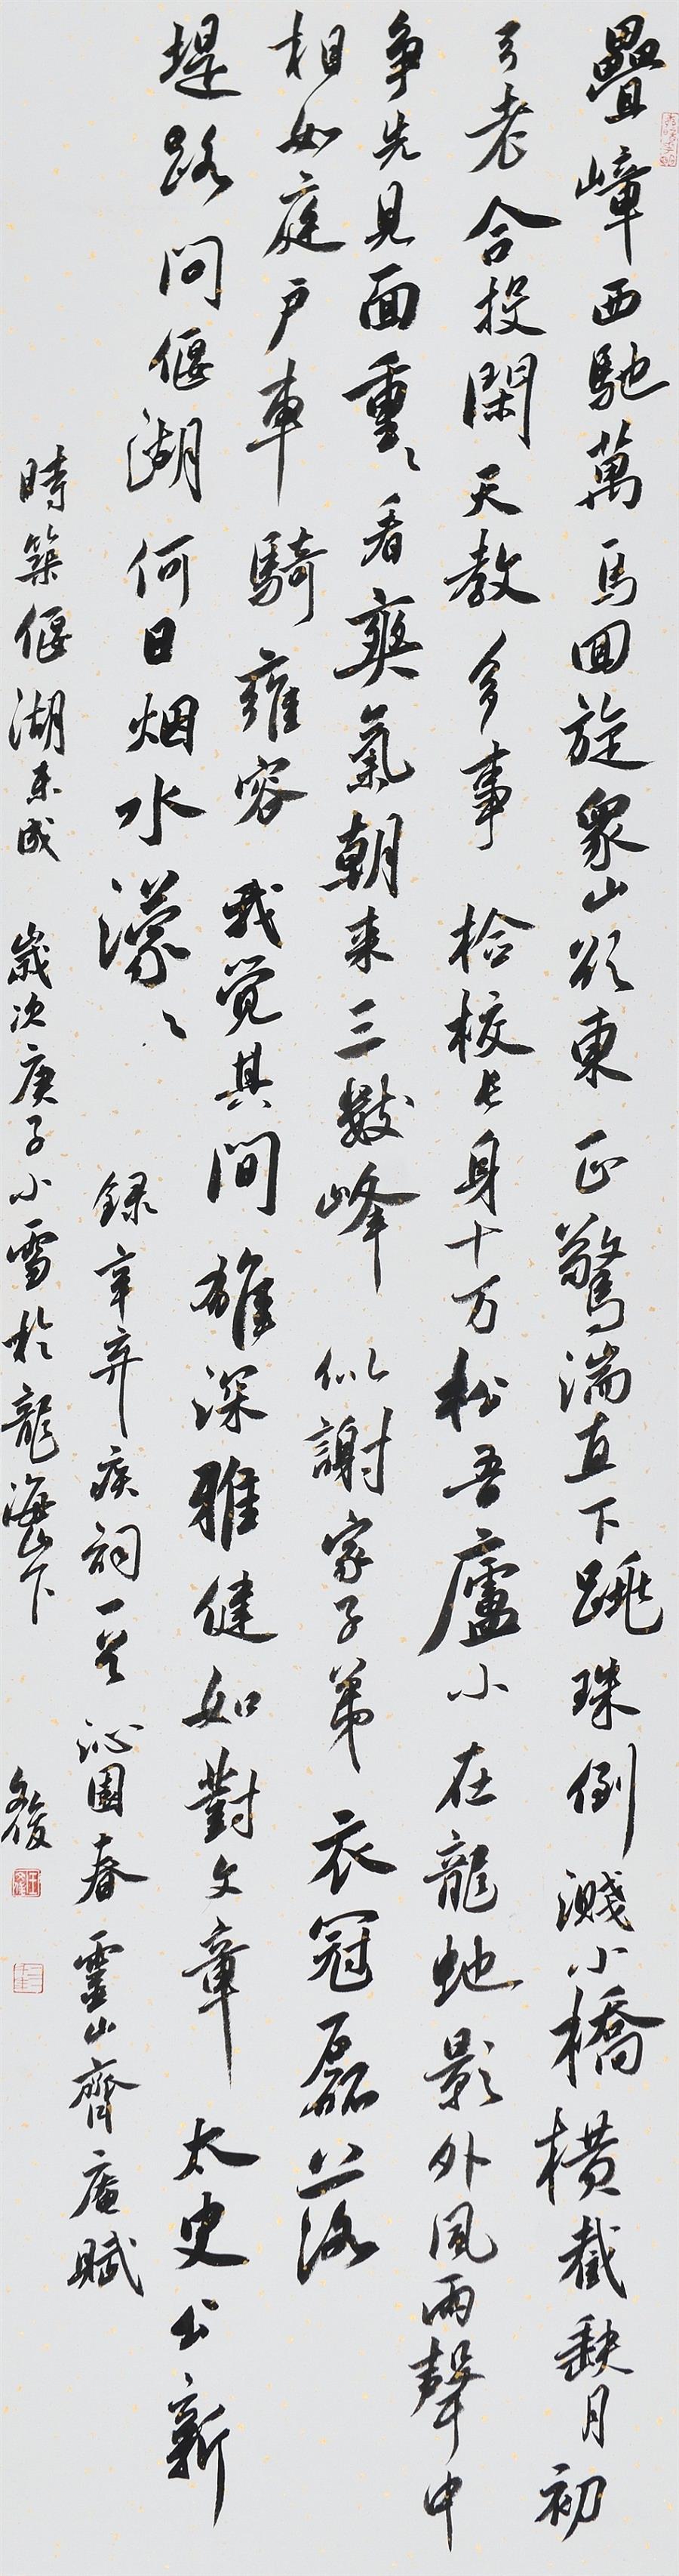 疊嶂西馳萬馬回旋衆山欲東正驚湍直下跳珠倒濺小橋橫截缺月初
弓老合投閑天教多事檢校長身十万松吾廬小在龍蛇影外風雨聲中
争先見面重〻看爽氣朝来三數峰似謝家子弟衣冠磊落
相如庭户車騎雍容我覺其間雄深雅健如對文章太史公新
堤路問偃湖何日烟水濛〻
録辛弃疾詞一首沁園春靈山齊庵賦
時築偃湖未成歲次庚子小雪於龍海山下